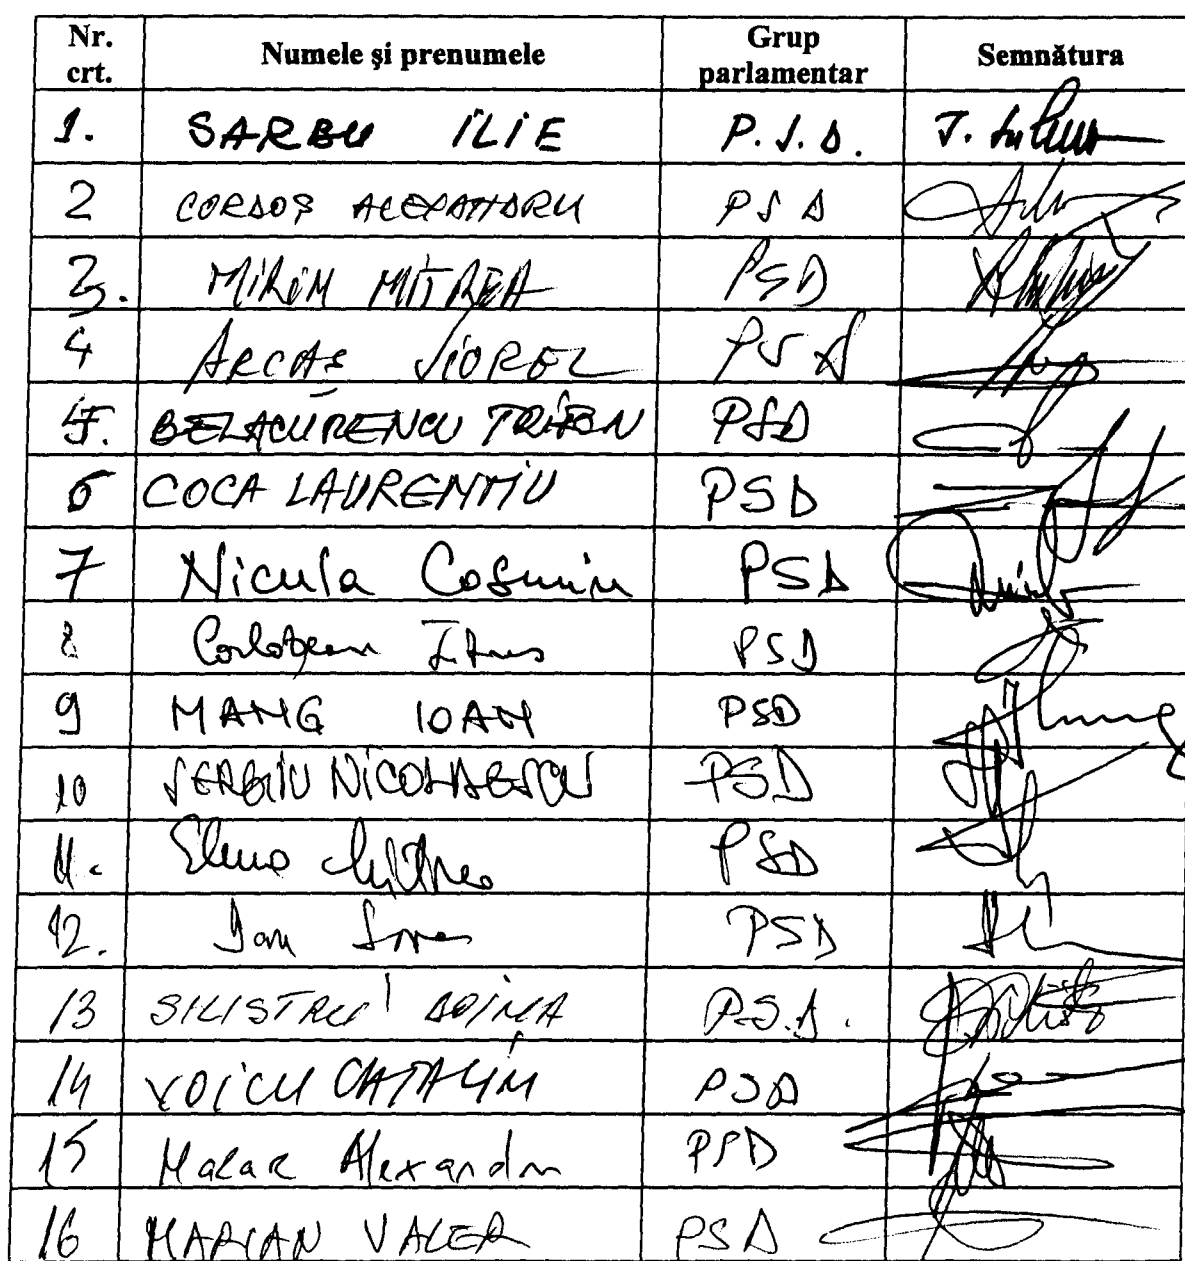 Nr. crt. Numele și prenumele Grup parlamentar Semnătura
1. SARBU ILIE P.S.D.
2 CORDOȘ ALEXANDRU PSD
3. MIRON MITREA PSD
4 ARCAȘ VIOREL PSD
5. BELACURENCU TRIFON PSD
6 COCA LAURENTIU PSD
7 Nicula Cosmin PSD
8 Corlățean Titus PSD
9 MANG IOAN PSD
10 SERGIU NICOLAESCU PSD
11. Elena Mitrea PSD
12. PSD
13 SILISTRU DOINA P.S.D.
14 VOICU CATALIN PSD
15 Mazăre Alexandru PSD
16 MARIAN VALER PSD